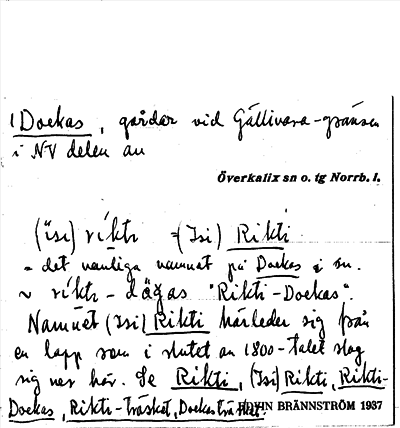 1 Dockas, gårdar vid Gällivara-gränsen
i NV delen av
Överkalix sn o. tg Norrb. l.
(isi) ríktı =(Isi) Rikti
= det vanliga namnet på Dockas i sn.
~ ríktı - dåǥas "Rikti-Dockas".
Namnet (Isi) Rikti härleder sig från
en lapp som i slutet av 1800-talet slog
sig ner här. Se Rikti, (Isi) Rikti, Rikti-
Dockas, Rikti-träsket, Dockasträsket.
BRÄNNSTRÖM 1937